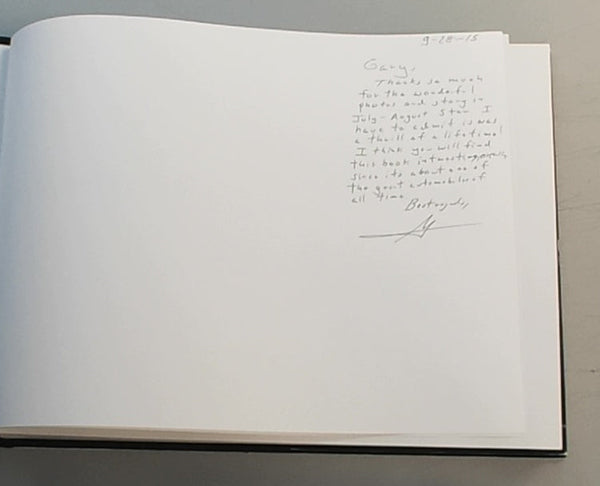 9-28-15
Gary,
Thanks so much
for the wonderful
photos and story in
July-August Star I
have to admit is was
a thrill of a lifetime!
I think you will find
this book interesting, especially
since its about one of
the great automobiles of
all time
Best regards,